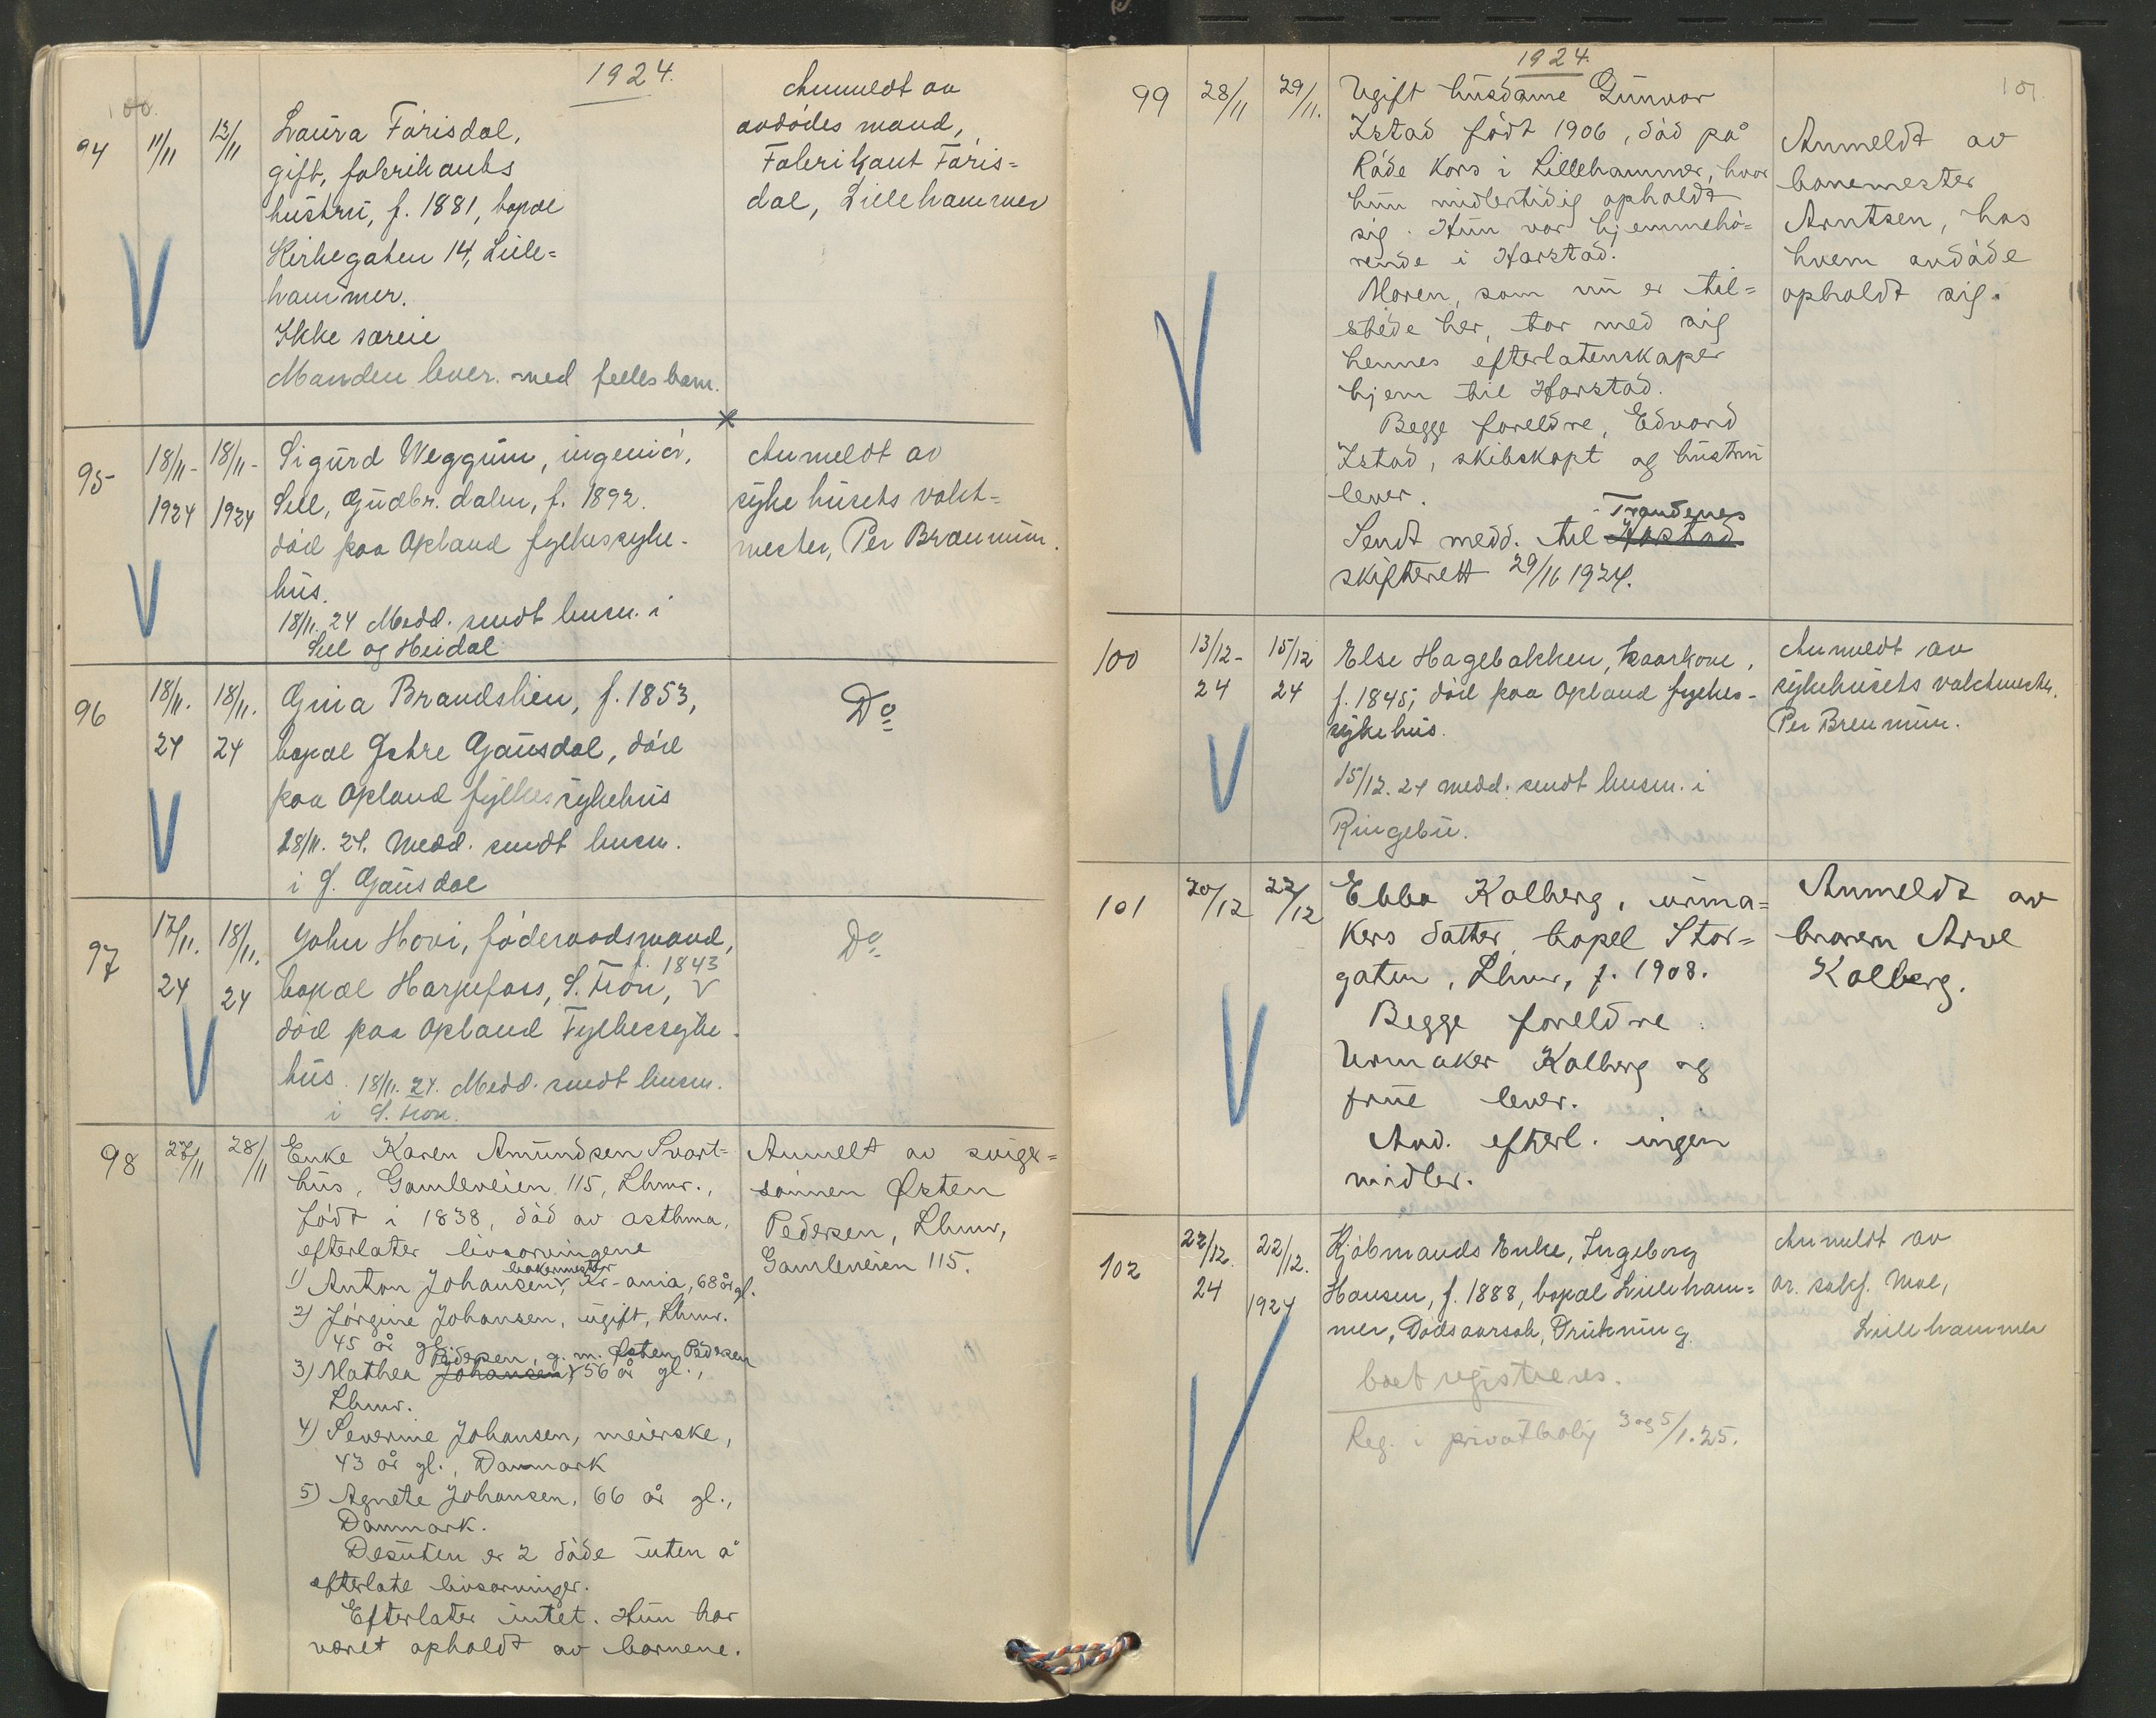 1924.
100.
94
11/11
12/11
Laura Fårisdal,
gift, fabrikants
hustru, f. 1881, bopæl
Kirkegaten 14, Lille=
hammer.
Ikke særeie
Manden lever. med felles barn.
Anmeldt av
avdødes mand,
Fabrikant Fåris=
dal, Lillehammer
95
18/11-
1924
18/11-
1924
Sigurd Veggum, ingeniør,
Sell, Gudbr. dalen, f. 1892.
død paa Opland fylkessyke-
hus.
18/11. 24 Medd. sendt lensm. i
Sell og Heidal
Anmeldt av
sykehusets vakt=
mester, Per Braenmim.
96
18/11.
24
18/11.
24
Gina Brandslien, f. 1853,
bopæl Østre Gausdal, død
paa Opland fylkessykehus
18/11. 24. Medd. sendt lensm.
i Ø. Gausdal
Do
97
17/11.
24
18/11.
24
John Hovi, føderaadsmand,
f. 1843
bopæl Harpefoss, S. Fron, v
død paa Opland Fylkessyke-
hus. 18/11. 24. Medd. sendt lensm.
i S. Fron.
Do
98
27/11
28/11
Enke Karen Amundsen Svart=
hus, Gamleveien 115, Lhmr.,
født i 1838, død av asthma,
efterlater livsarvingene
bakermester
1) Anton Johansen, v Kr-ania, 68 år gl.
2) Jørgine Johansen, ugift, Lhmr.
45 år gl.
Pedersen, g. m. Østen Pedersen
3) Mathea Johansen, v 56 år gl.,
Lhmr.
4) Severine Johansen, meierske,
43 år gl., Danmark
5) Agnete Johansen, 66 år gl.,
Danmark.
Desuten er 2 døde uten å
efterlate livsarvinger.
Efterlater intet. Hun har
været opholdt av barnene.
Anmelt av svige=
sønnen Østen
Pedersen, Lhmr,
Gamleveien 115.
1924.
101.
99
28/11
29/11.
Ugift husdame Gunvor
Istad født 1906, død på
Røde Kors i Lillehammer, hvor
hun midlertidig opholdt
sig. Hun var hjemmehø=
rende i Harstad.
Moren, som nu er til=
stede her, tar med sig
hennes efterlatenskaper
hjem til Harstad.
Begge foreldre, Edvard
Istad, skibskapt og hustru
lever.
Trondenes
Sendt medd. til Harstad
skifterett 29/11 1924.
Anmeldt av
banemester
Arntsen, hos
hvem avdøde
opholdt sig.
100
13/12-
24
15/12
24
Else Hagebakken, kaarkone,
f. 1845, død paa Opland fylkes-
sykehus.
15/12. 24 medd. sendt lensm. i
Ringebu.
Anmeldt av
sykehusets vaktmester.
Per Brenmim.
101
20/12
22/12
Ebba Kalberg, urma=
kers datter, bopel Stor=
gaten, Lhmr, f. 1908.
Begge foreldre
Urmaker Kalberg og
frue lever.
Avd. efterl. ingen
midler.
Anmeldt av
broren Arve
Kalberg.
102
22/12.
24
22/12.
1924
Kjøbmands Enke, Ingeborg
Hansen, f. 1888, bopæl Lilleham=
mer, Dødsaarsak, Drukning.
boet registreres.
Reg. i privatbolig 3 og 5/1.25.
Anmeldt av
or. sakf. Moe,
Lillehammer